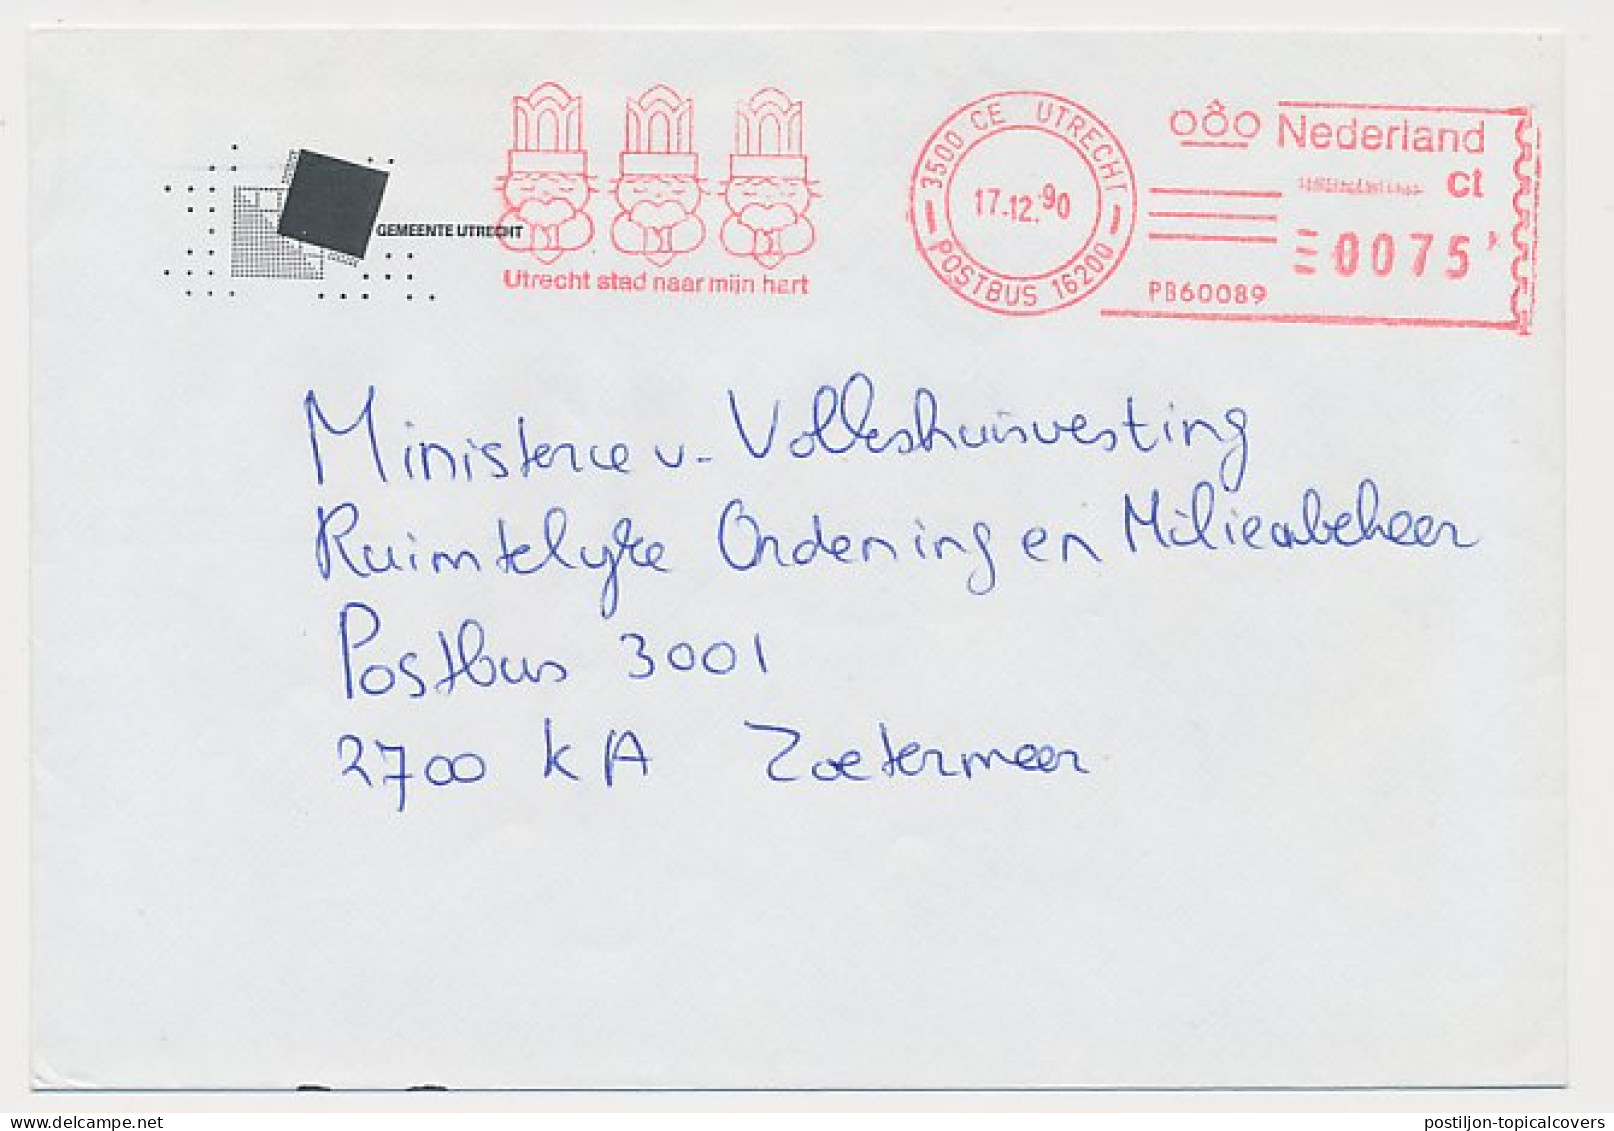 GEMEENTE UTRECHT
Utrecht stad naar mijn hart
3500 CE UTRECHT
17.12.'90
POSTBUS 16200
Nederland
ct
0075
PB60089
Ministerie v. Volkshuisvesting
Ruimtelyke Ordening en Milieubeheer
Postbus 3001
2700 KA Zoetermeer
postiljon-topicalcovers